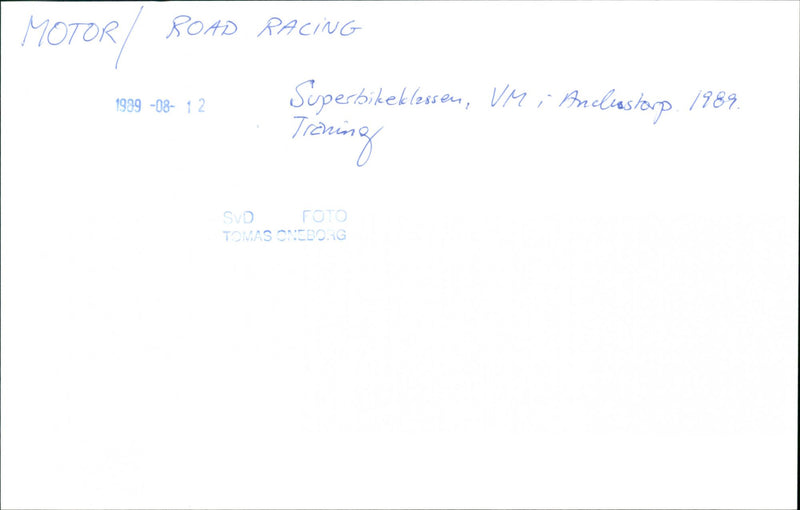 MOTOR/ ROAD RACING
1989 -08- 12
Superbikeklassen, VM i Anderstorp 1989.
Träning
SVD FOTO
TOMAS ONEBORG